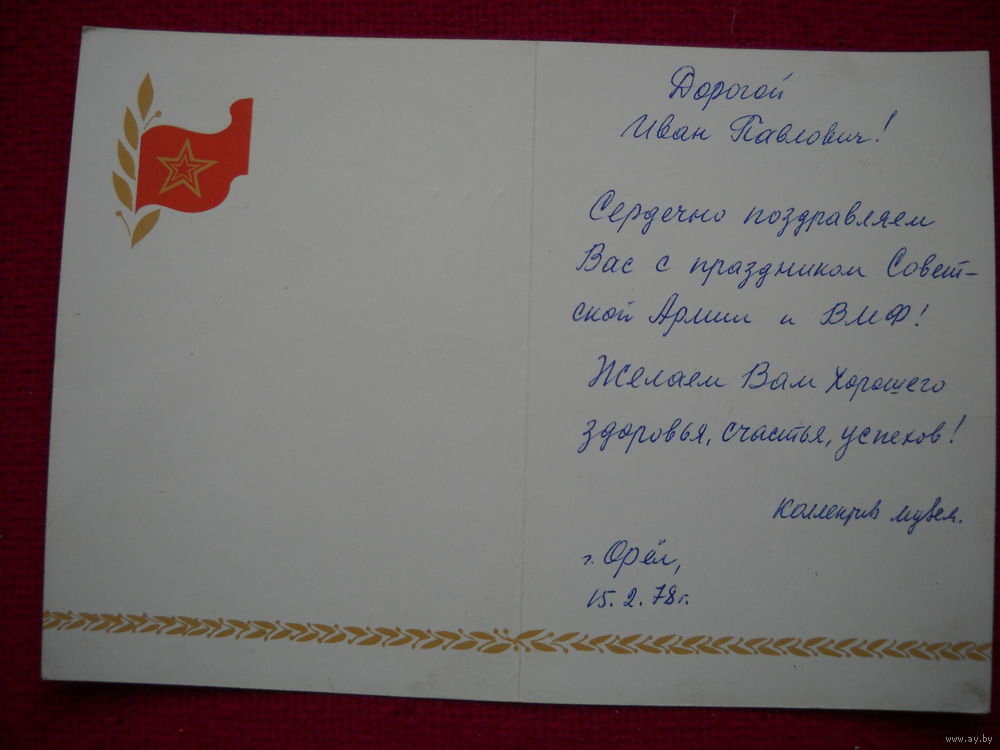 Дорогой
Иван Павлович!
Сердечно поздравляем
Вас с праздником Совет-
ской Армии и ВМФ!
Желаем Вам хорошего
здоровья, счастья, успехов!
Коллектив музея.
г. Орёл,
15.2.78г.
www.ay.by